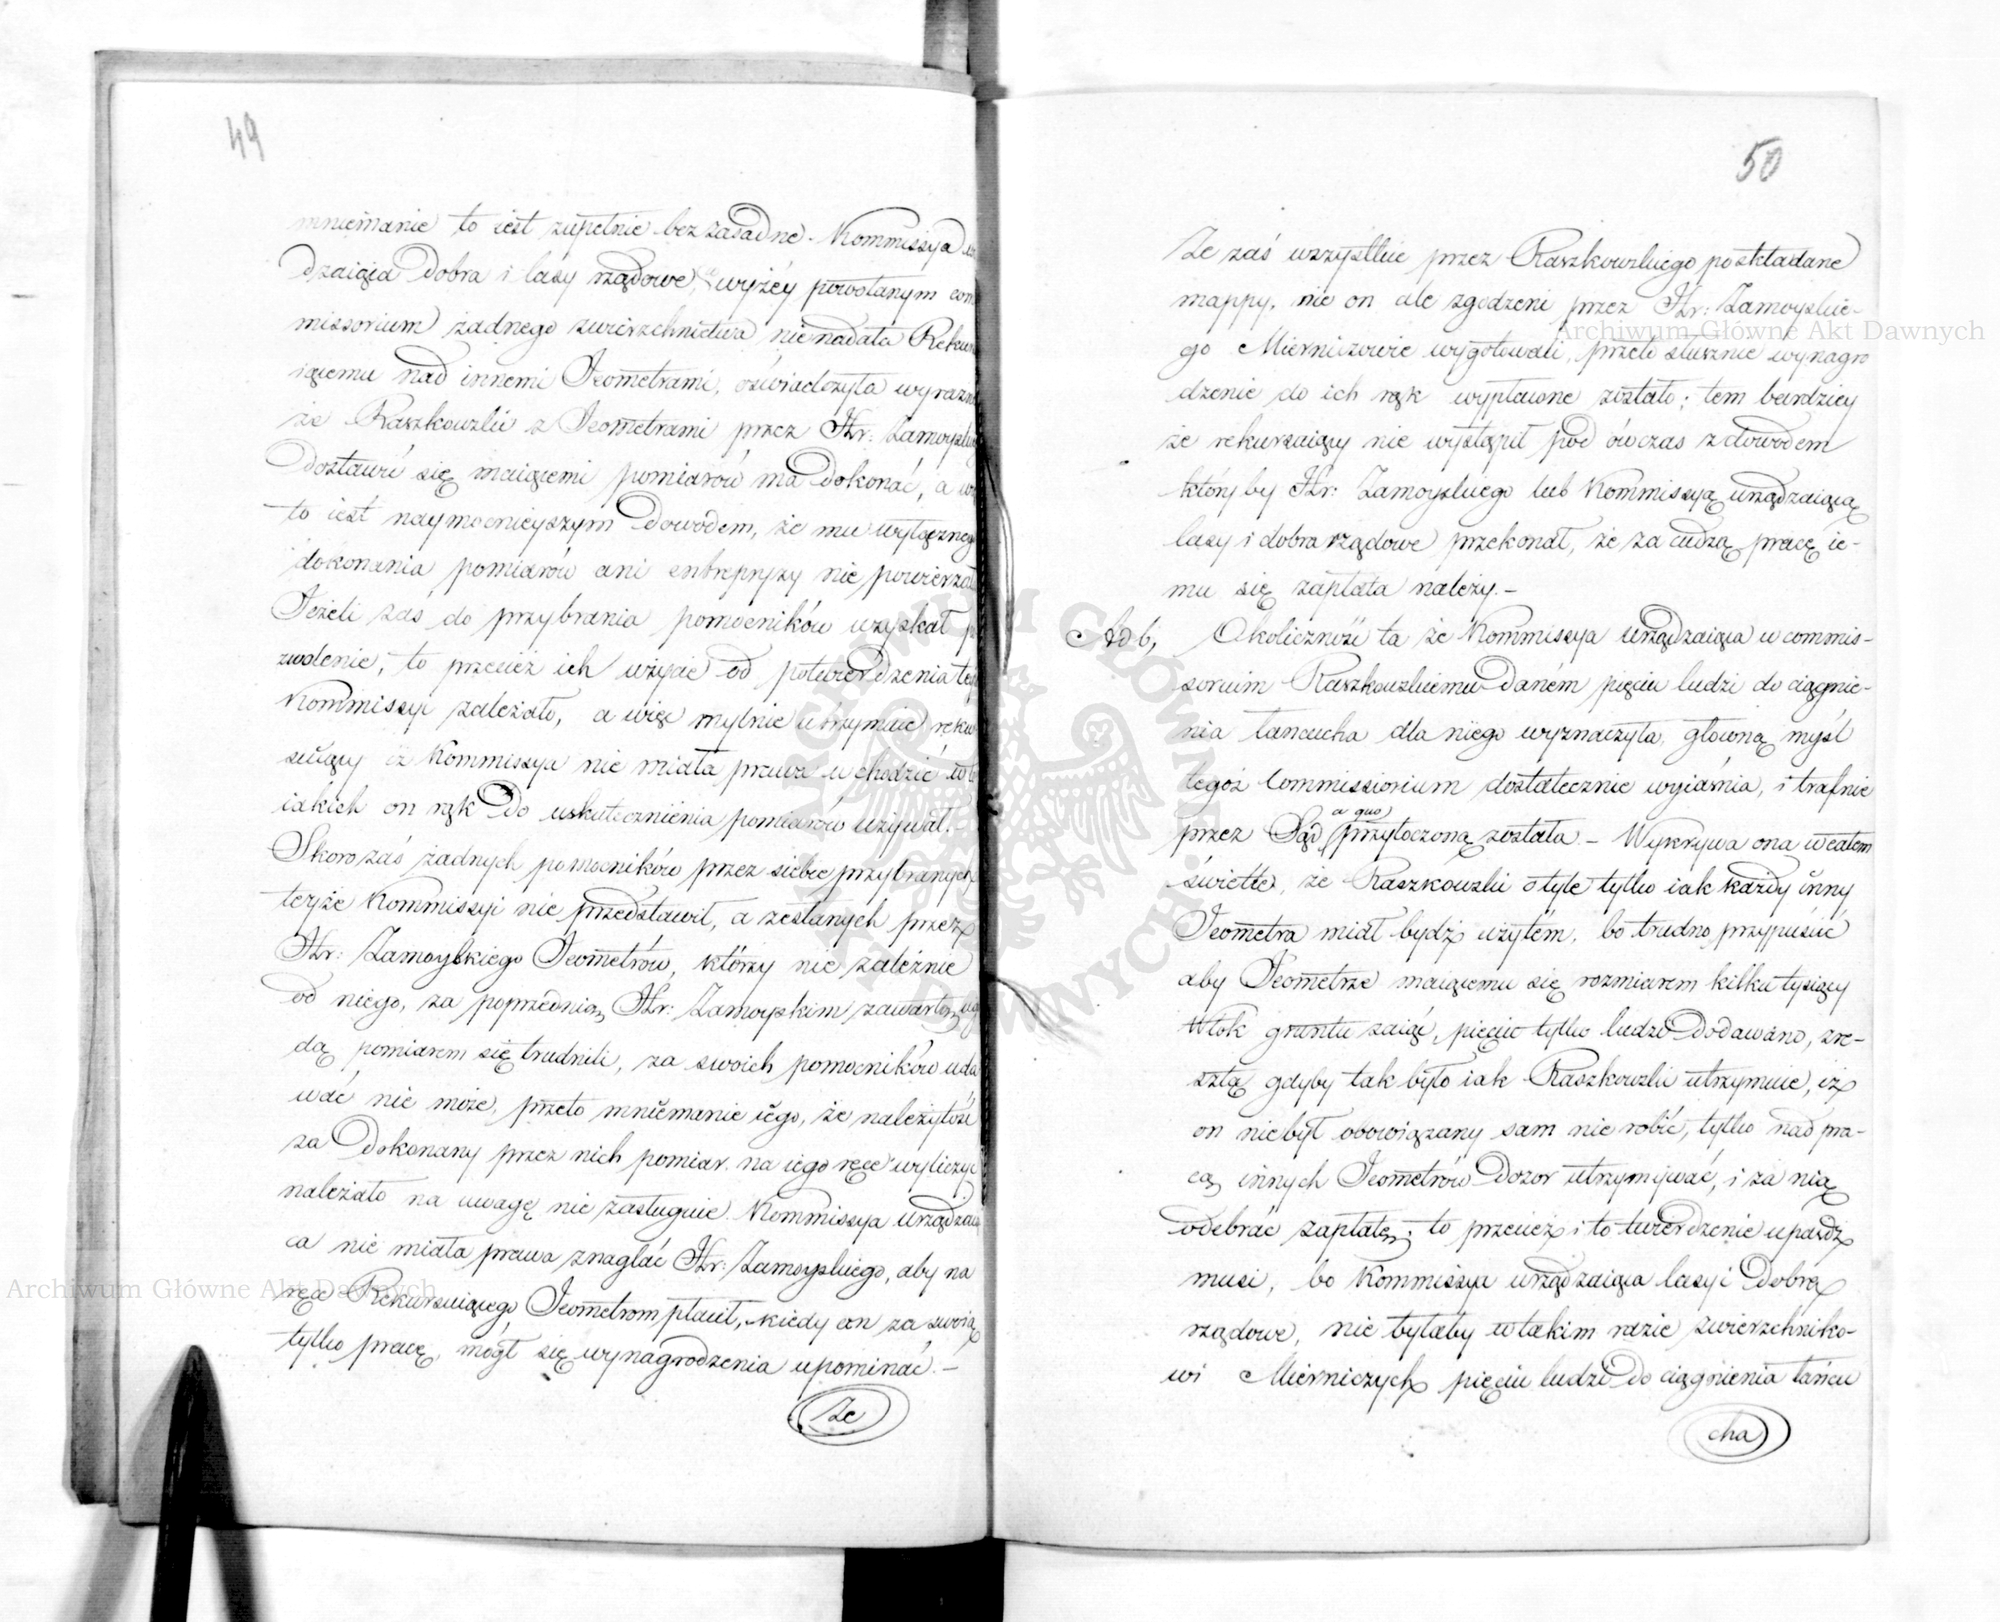 49
mniemanie to iest zupełnie bez zasadne. Kommissya
dzaiąca dobra i lasy rządowe, wyżéy powołanym com
missorium żadnego zwierzchnictwa nie nadała Rekur
iącemu nad innemi Jeometrami, oświadczyła wyrazn
że Raszkowzki z Jeometrami przez Hr: Zamoysk
dostawić się maiącemi pomiarów ma dokonać, a
to iest naymocnieyszym dowodem, że mu wyłączneg
dokonania pomiarów ani entrepryzy nie powierzał
Jeżeli zaś do przybrania pomocników uzyskał p
zwolenie, to przecież ich użycie od potwierdzenia téy
Kommissyi zależało, a więc mylnie utrzymuie reku
suiący iż Kommissya nie miała prawa wchodzić w to
iakich on rąk do uskutecznienia pomiarów używał.-
Skoro zaś żadnych pomocników przez siebie przybranych
teyże Kommissyi nie przedstawił, a zesłanych przez
Hr: Zamoyskiego Jeometrów, którzy nie zależnie
od niego, za poprzednią Hr: Zamoyskim zawartą ug
dą pomiarem się trudnili, za swoich pomocników uda
wać nie może, przeto mniemanie iego, że należytość
za dokonany przez nich pomiar na iego ręce wyliczyć
należało na uwagę nie zasługuie. Kommissya urządzaią
ca nie miała prawa znaglać Hr: Zamoyskiego, aby na
ręce Rekursuiącego, Jeometrom płacił, kiedy on za swoią
tylko pracę, mógł się wynagrodzenia upominać.-
Ze
50
Ze zaś wszystkie przez Raszkowzkiego poskładane
mappy, nie on ale zgodzeni przez Hr: Zamoyskie-
go Mierniczowie wygotowali, przeto słusznie wynagro
dzenie do ich rąk wypłacone zostało; tem bardziey
że rekursuiący nie wystąpił pod ówczas z dowodem
który by Hr: Zamoyskiego lub Kommissyą urządzaiącą
lasy i dobra rządowe przekonał, że za cudzą pracę ie-
mu się zapłata należy.-
Ad 6, Okoliczność ta że Kommissya urządzaiąca w commis-
sorium Raszkowzkiemu daném pięciu ludzi do ciągnie-
nia łańcucha dla niego wyznaczyła, głowną myśl
tegoż Commissiorium dostatecznie wyiaśnia, i trafnie
przez Sąd a quo przytoczoną została.- Wykrywa ona w całem
świetle, że Raszkowzki o tyle tylko iak każdy inny
Jeometra miał bydź użytém, bo trudno przypuścić
aby Jeometrze maiącemu się rozmiarem kilku tysięcy
Włok gruntu zaiąć, pięciu tylko ludzi dodawano, zre-
sztą gdyby tak było iak Raszkowzki utrzymuie, iż
on niebył obowiązany sam nie robić, tylko nad pra-
cą innych Jeometrów dozor utrzymywać, i za nią
odebrać zapłatę; to przecież i to twierdzenie upaśdź
musi, bo Kommissya urządzaiąca lasy i dobra
rządowe, nie byłaby w takim razie zwierzchniko-
wi Mierniczych pięciu ludzi do ciągnienia łańcu
cha
Archiwum Główne Akt Dawnych
Archiwum Główne Akt Dawnych